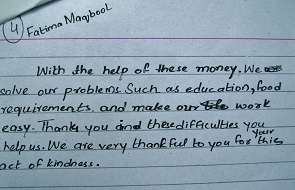 4 Fatima Maqbool
With the help of these money. We
solve our problems Such as education, food
requirements, and make our work
easy. Thank you ind these difficulties you
help us. We are very thankful to you for your this
act of kindness.